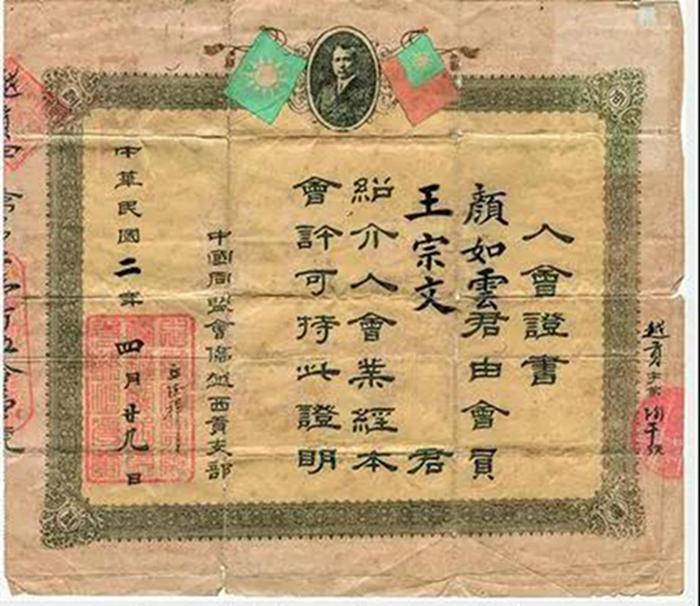 入會證書
顏如雲君由會員
王宗文君
紹介入會業經本
會許可持此證明
中國同盟會僑越西貢支部
中華民國二年四月廿九日